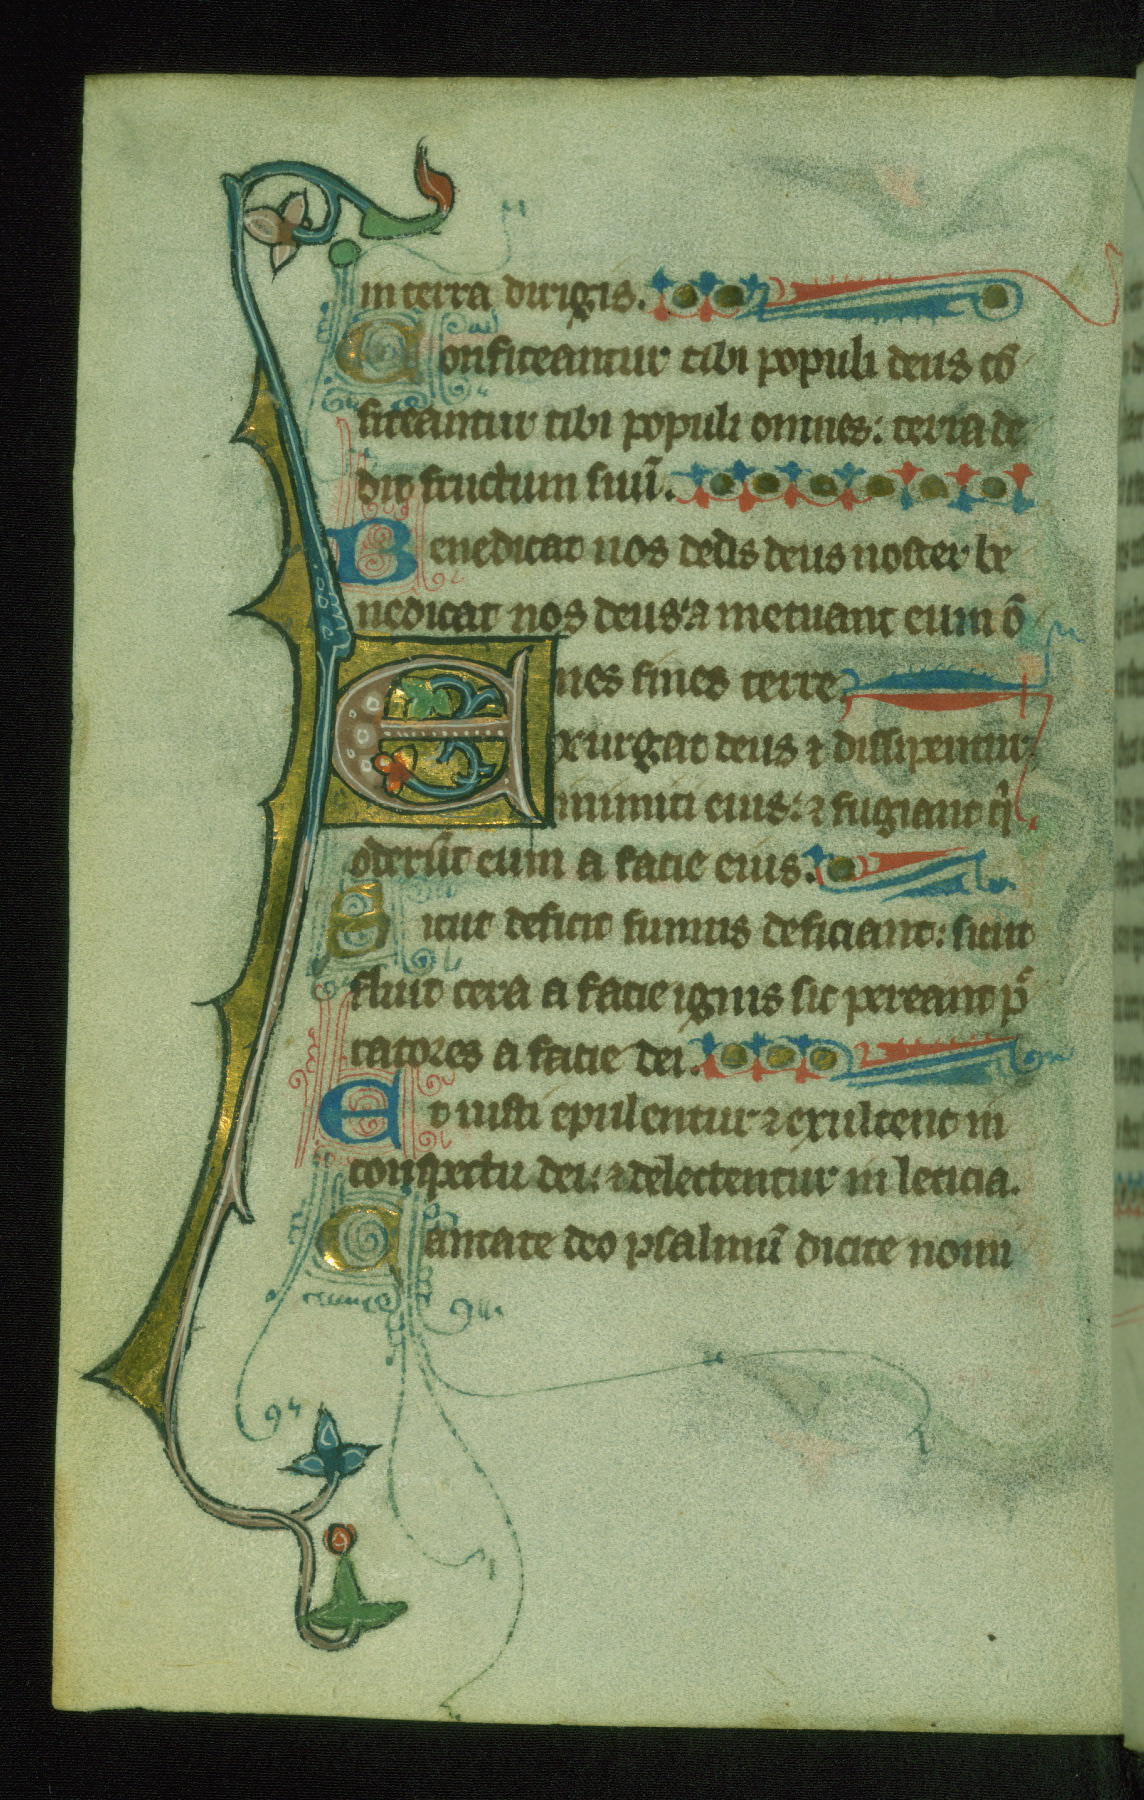 in terra dirigis.
Confiteantur tibi populi deus cō
fiteantur tibi populi omnes: terra de
dit fructum suū.
Benedicat nos deus deus noster be
nedicat nos deus: ⁊ metuant eum ō
nes fines terre.
Exurgat deus ⁊ dissipentur
inimici eius: ⁊ fugiant q̄
oderūt eum a facie eius.
Sicut deficit fumus deficiant: sicut
fluit cera a facie ignis sic pereant pͨ
catores a facie dei.
Et iusti epulentur ⁊ exultent in
conspectu dei: ⁊ delectentur in leticia.
Cantate deo psalmū dicite nomi